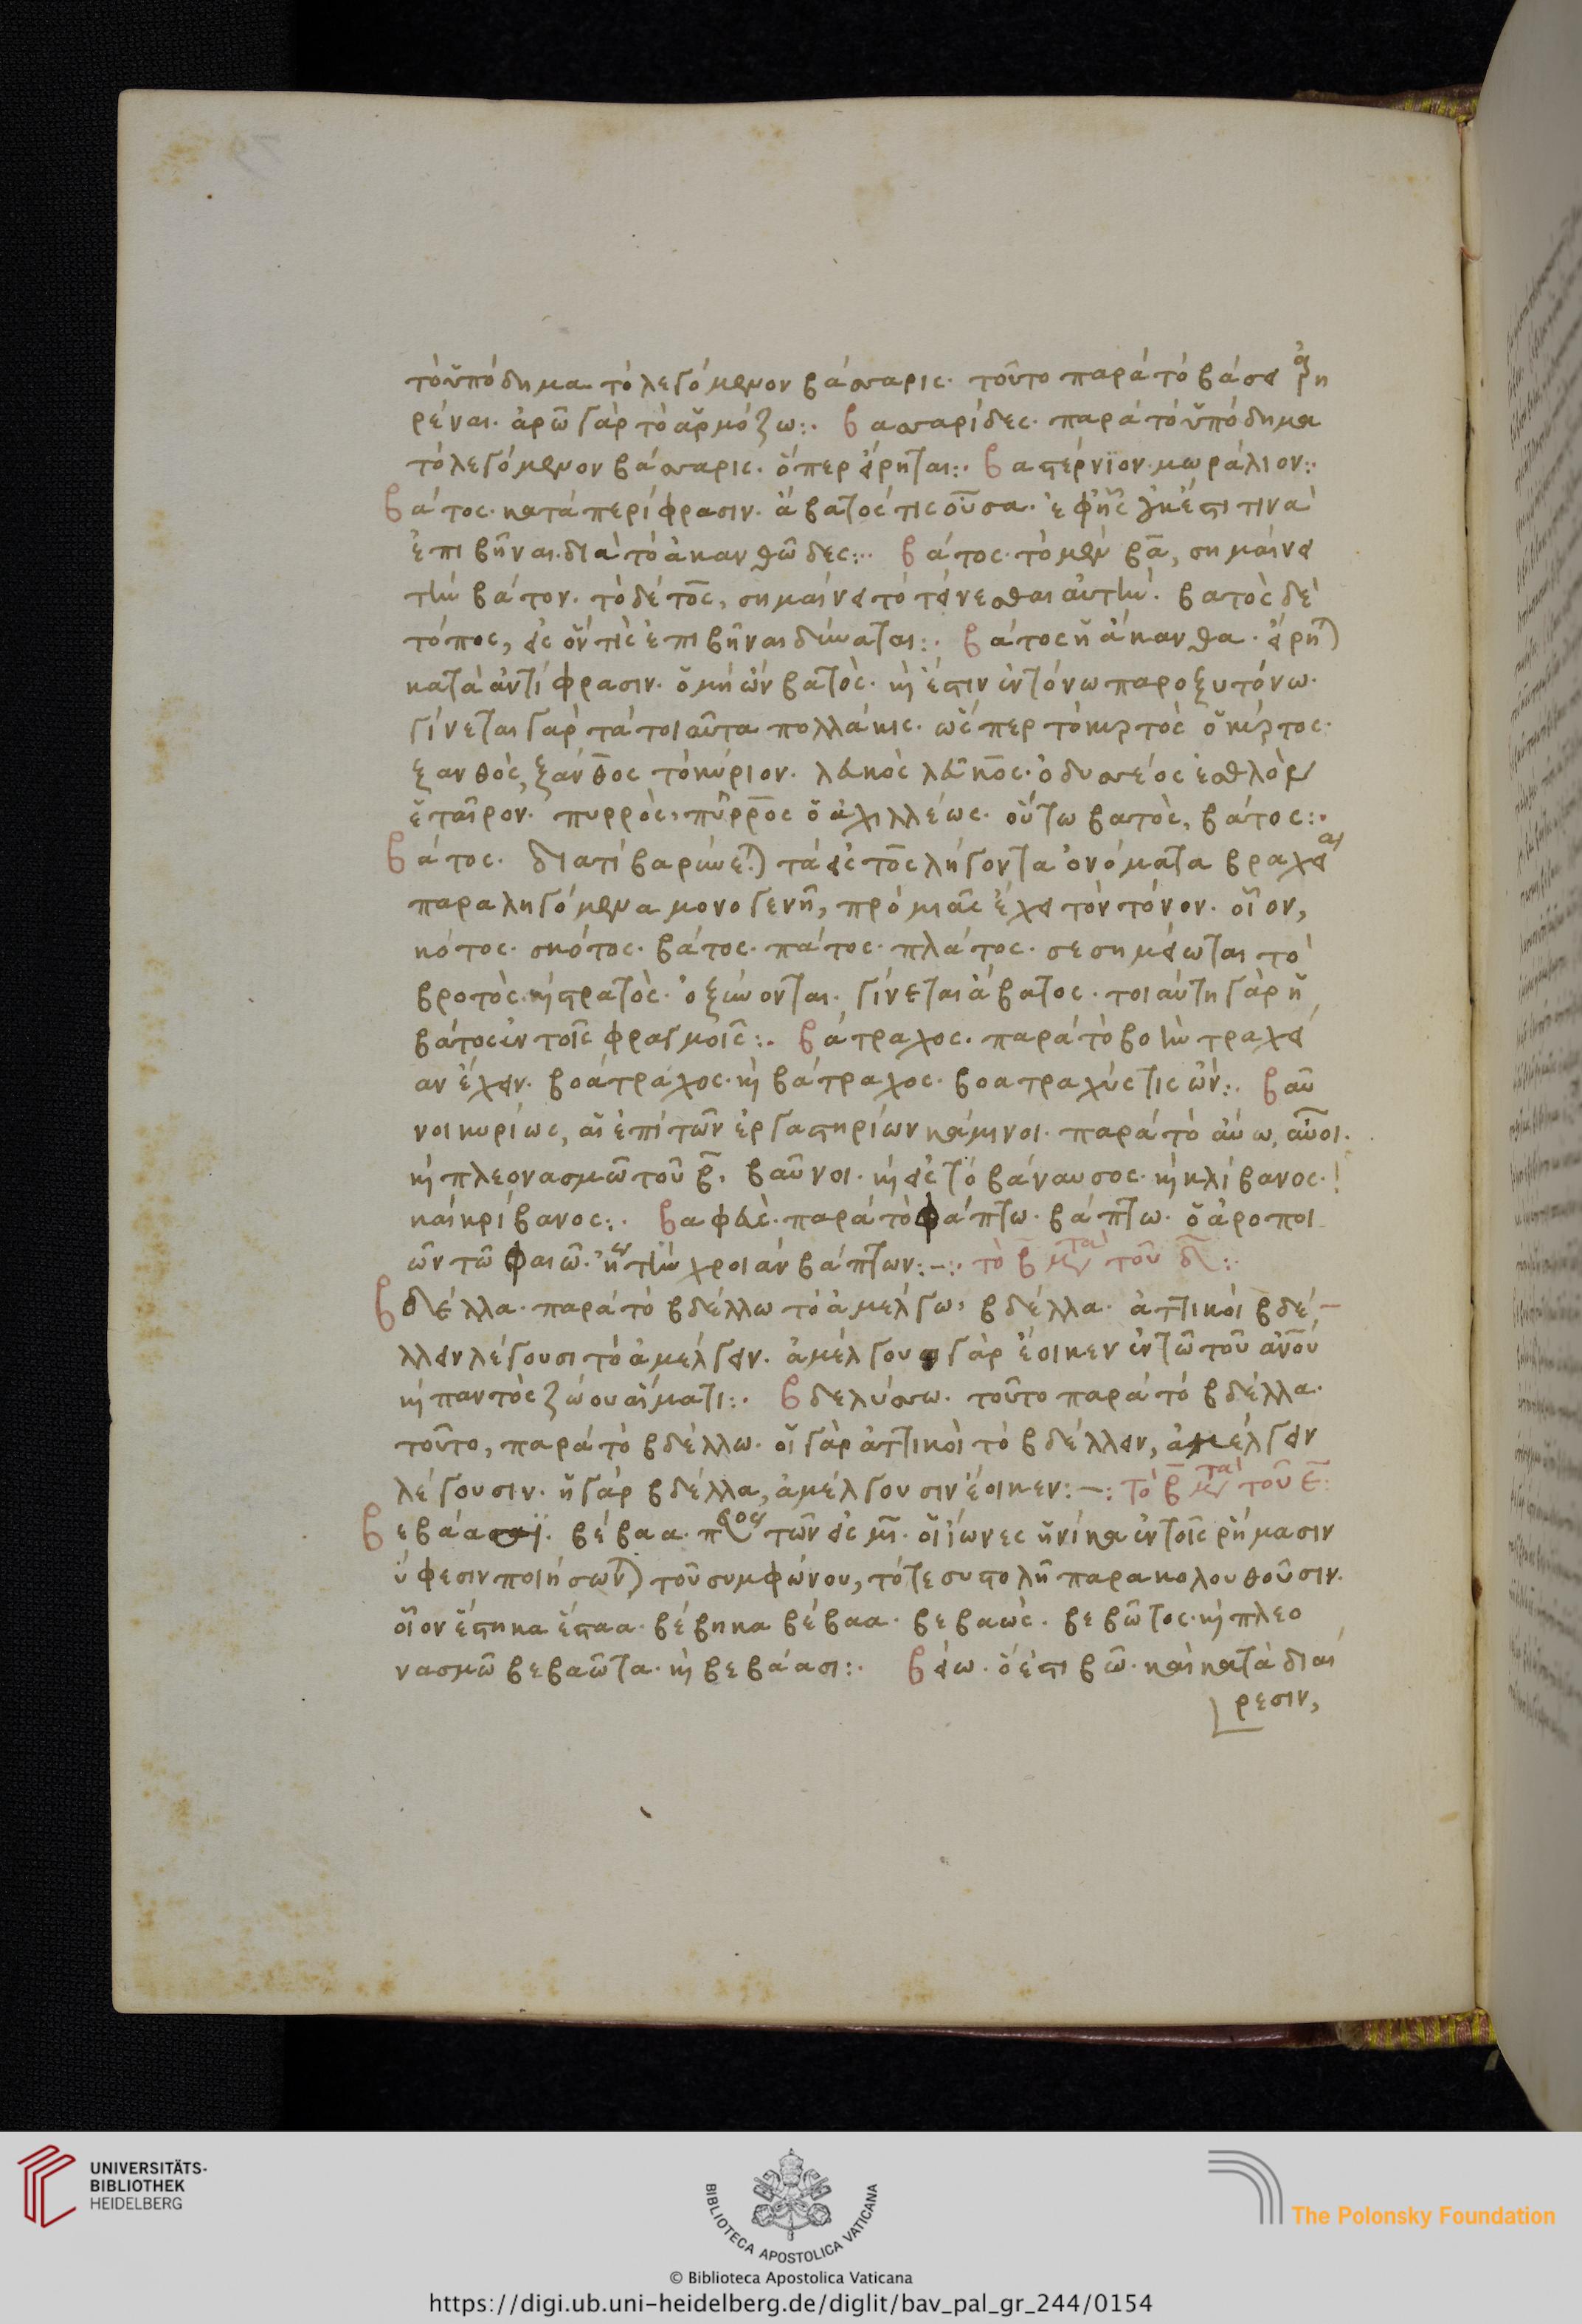 τὸ ὑπόδημα τὸ λεγόμενον βάσσαρις· τοῦτο παρὰ τὸ βάσει ἀρη
ρέναι· ἀρῶ γὰρ τὸ ἁρμόζω:· βασσαρίδες· παρὰ τὸ ὑπόδημα
τὸ λεγόμενον βάσσαρις· ὅπερ εἴρηται:· βαστέρνιον· μωράλιον:·
βάτος· κατὰ περίφρασιν· ἄβατός τις οὖσα· ἐφ' ἧς οὐκ ἔστι τινὰ
ἐπιβῆναι· διὰ τὸ ἀκανθῶδες:· βάτος· τὸ μὲν βα, σημαίνει
τὴν βάτον· τὸ δὲ τος, σημαίνει τὸ τείνεσθαι αὐτήν· βατὸς δὲ
τόπος, εἰς ὅν τις ἐπιβῆναι δύναται:· βάτος ἡ ἄκανθα· εἴρηται
κατὰ ἀντίφρασιν· ὁ μὴ ὢν βατός· καὶ ἔστιν ἐν τόνω παροξυτόνω·
γίνεται γὰρ τὰ τοιαῦτα πολλάκις· ὥσπερ τὸ κυρτὸς ὁ κύρτος·
ξανθὸς, ξάνθος τὸ κύριον· λευκὸς λεῦκος· ὀδυσσέος ἐσθλὸν
ἑταῖρον· πυρρὸς, πύρρος ὁ ἀχιλλέως· οὕτω βατὸς, βάτος:·
βάτος· διατί βαρύνεται τὰ εἰς τος λήγοντα ὀνόματα βραχεία
παραληγόμενα μονογενῆ, πρὸ μιᾶς ἔχει τὸν τόνον· οἷον,
κότος· σκότος· βάτος· πάτος· πλάτος· σεσημείωται τὸ
βροτὸς· καὶ στρατὸς· ὀξύνονται· γίνεται ἄβατος· τοιαύτη γὰρ ἡ
βάτος ἐν τοῖς φραγμοῖς:· βάτραχος· παρὰ τὸ βοὴν τραχεῖ
αν ἔχειν· βοάτραχος· καὶ βάτραχος· βοατραχύς τις ὤν:· βαῦ
νοι κυρίως, αἱ ἐπὶ τῶν ἐργαστηρίων κάμινοι· παρὰ τὸ αὔω, αὖοι·
καὶ πλεονασμῶ τοῦ β, βαῦνοι· καὶ εἰς τὸ βάναυσος· καὶ κλίβανος·
καὶ κρίβανος:· βαφεὺς· παρὰ τὸ φάπτω· βάπτω· ὁ ἀροποι
ῶν τῶ φαιῶ· ἢ τὴν χροιὰν βάπτων:–:· τὸ β μετὰ τοῦ δ:·
βδέλλα· παρὰ τὸ βδέλλω τὸ ἀμέλγω, βδέλλα· ἀττικοὶ βδέ–
λλειν λέγουσι τὸ ἀμέλγειν· ἀμέλγουσι γὰρ ἔοικεν ἐν τῶ τοῦ ἀνου
καὶ παντὸς ζώου αἵματι:· βδελύσσω· τοῦτο παρὰ τὸ βδέλλα·
τοῦτο, παρὰ τὸ βδέλλω· οἱ γὰρ ἀττικοὶ τὸ βδέλλειν, ἀμέλγειν
λέγουσιν· ἡ γὰρ βδέλλα, ἀμέλγουσιν ἔοικεν:–: τὸ β μετὰ τοῦ ε:
βεβάασϊ. βέβαα· τῶν εἰς μι· οἱ ἴωνες ἡνίκα ἐν τοῖς ῥήμασιν
ὕφεσιν ποιήσωνται τοῦ συμφώνου, τότε συστολῆ παρακολουθοῦσιν·
οἷον ἕστηκα ἕσταα· βέβηκα βέβαα· βεβαὼς· βεβῶτος· καὶ πλεο
νασμῶ βεβαῶτα· καὶ βεβάασι:· βείω· ὅ ἐστι βῶ· καὶ κατὰ διαί
ρεσιν,
UNIVERSITÄTS-
BIBLIOTHEK
HEIDELBERG
BIBLIOTECA APOSTOLICA VATICANA
The Polonsky Foundation
© Biblioteca Apostolica Vaticana
https://digi.ub.uni-heidelberg.de/diglit/bav_pal_gr_244/0154